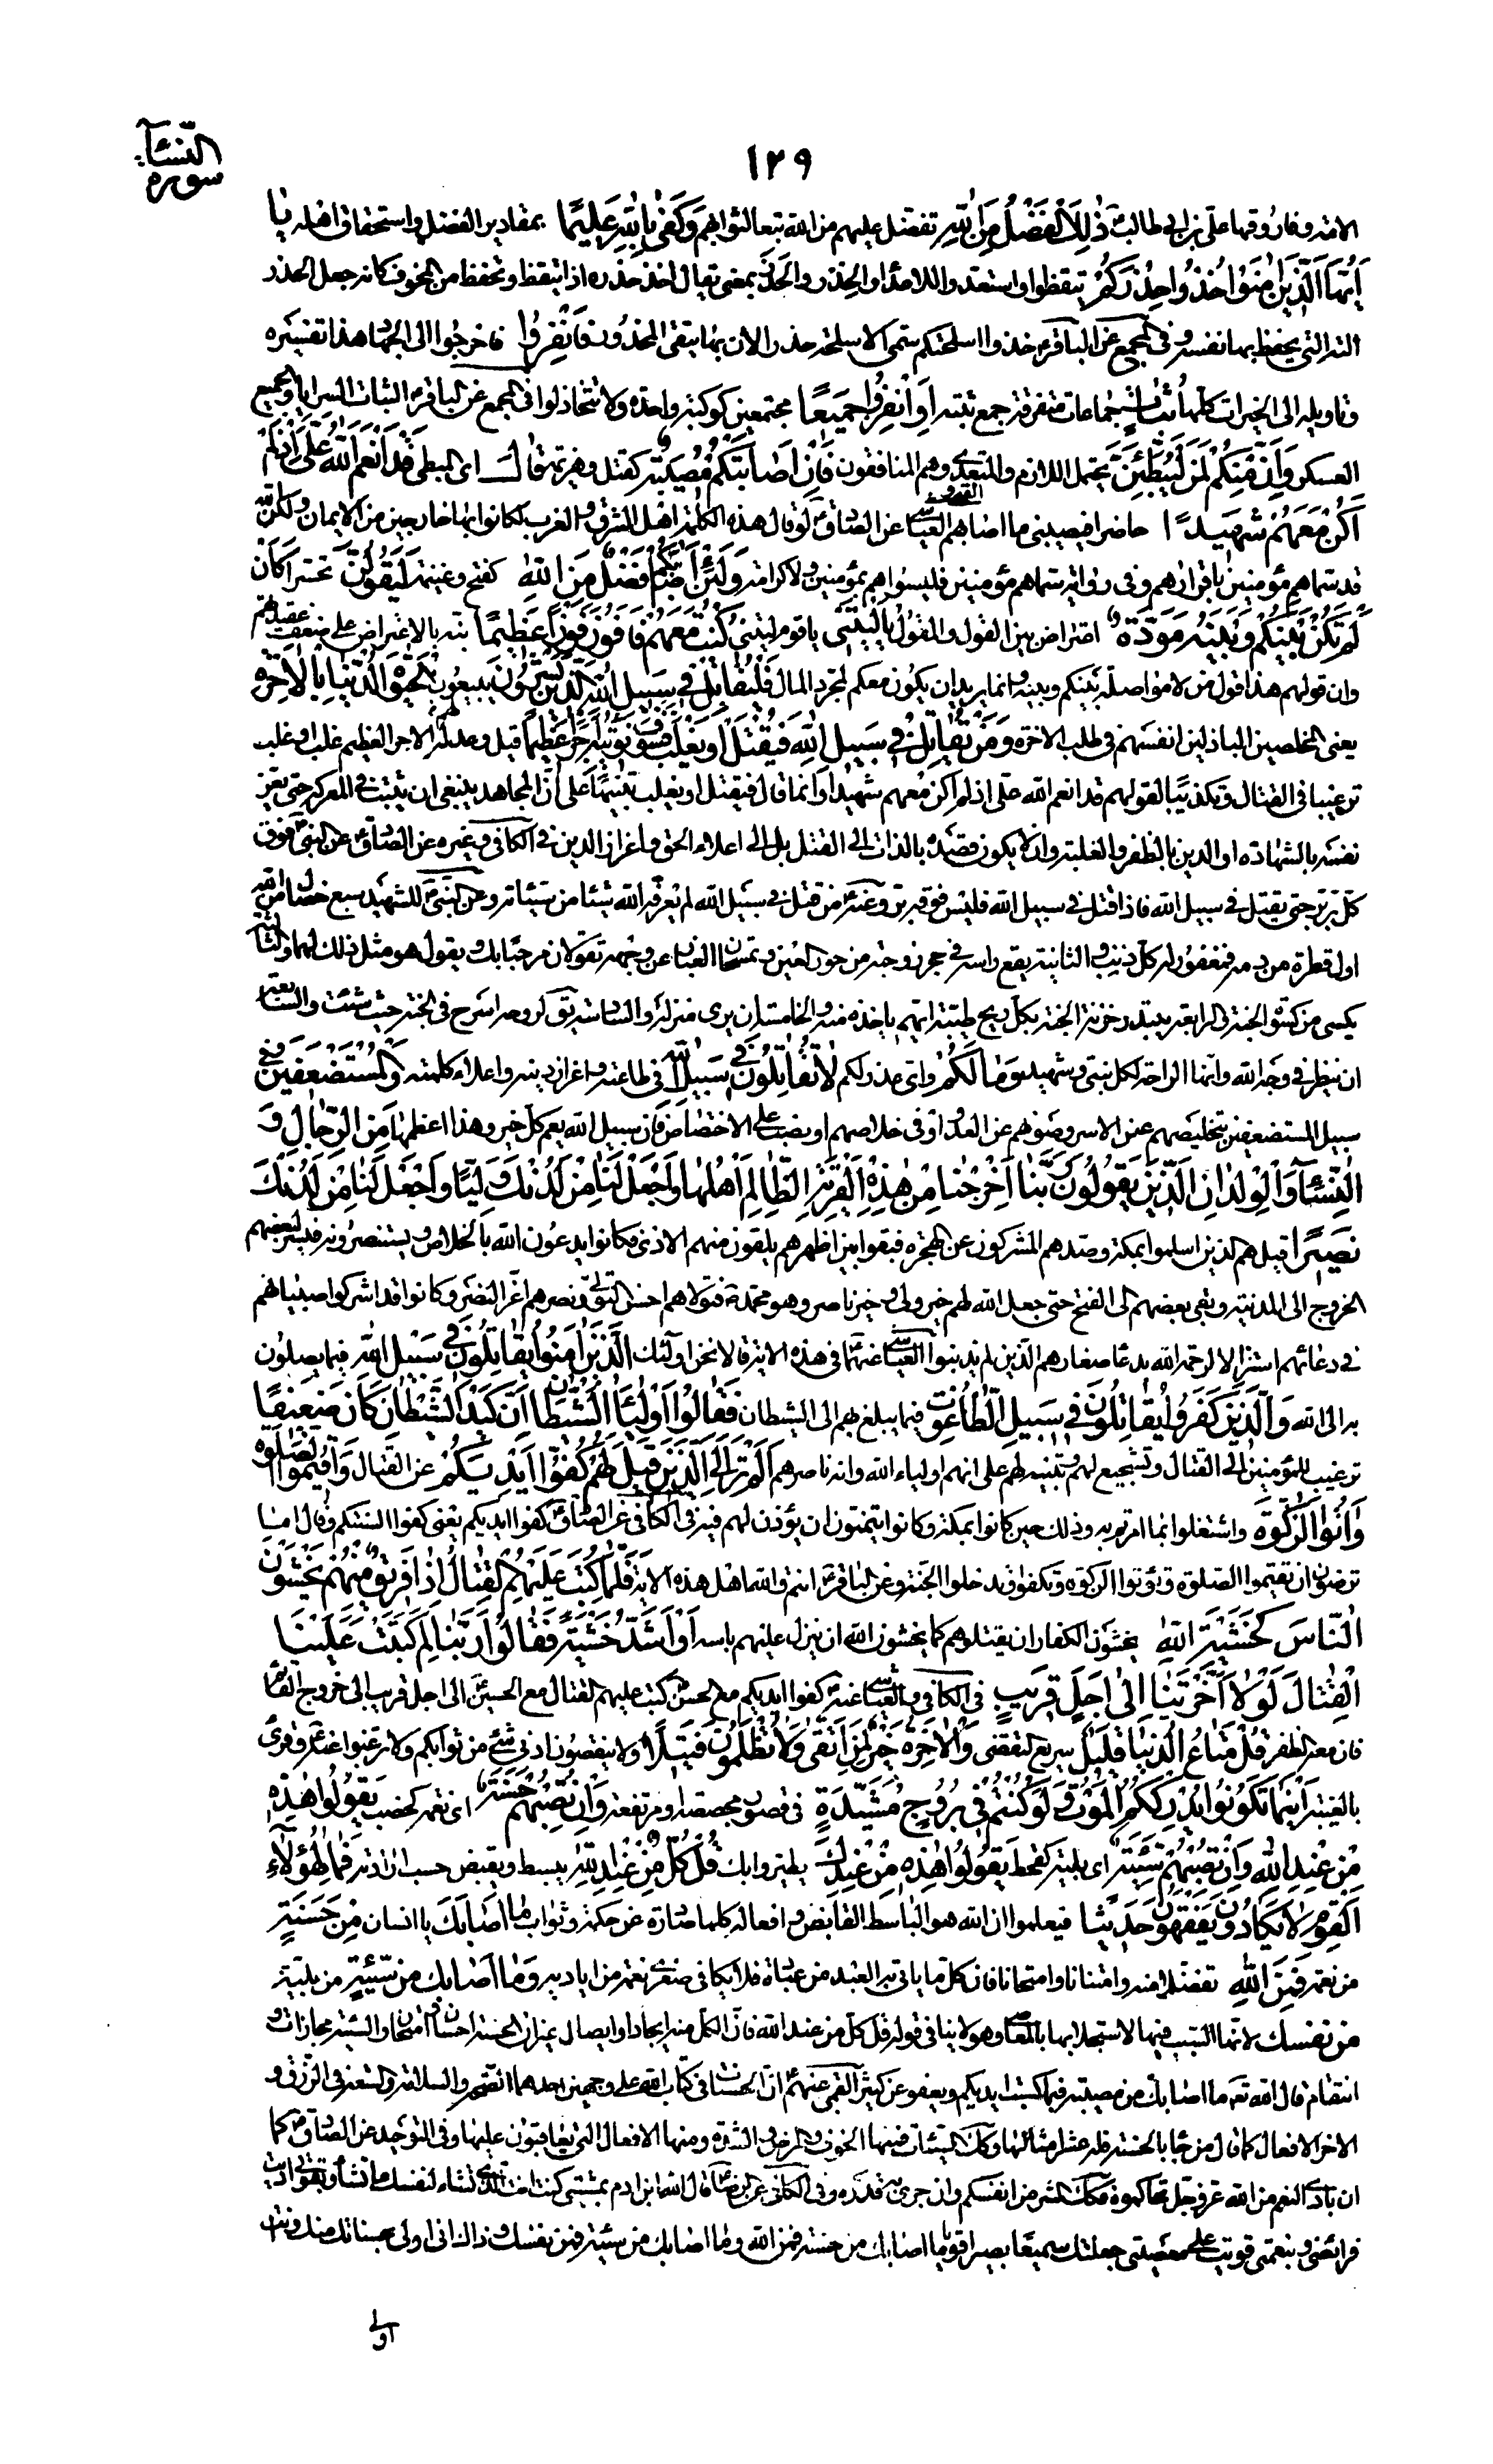 سورة النساء
١٢٩
الامة وفاروقها علي بن ابي طالب ذٰلِكَ الْفَضْلُ مِنَ اللّٰهِ تفضل عليهم من الله تبعا لثوابهم وَكَفىٰ بِاللّٰهِ عَلِيمًا بمقادير الفضل واستحقاق اهله يٰا
اَيُّهَا الَّذِينَ اٰمَنُوا خُذُوا حِذْرَكُمْ تيقظوا واستعدوا للاعداء والحِذر والحَذر بمعنى يقال اخذ حذره اذا تيقظ وتحفظ من المخوف كانه جعل الحذر
الته التي يحفظ بها نفسه وفي المجمع عن الباقر ع خذوا اسلحتكم سمى الاسلحة حذرا لان بها يتقى المحذور فَانْفِرُوا فاخرجوا الى الجهاد هذا تفسيره
وتاويله الى الخيرات كلها ثُبٰاتٍ جماعات متفرقة جمع ثبة اَوِ انْفِرُوا جَمِيعًا مجتمعين كوكبة واحدة ولا تتخاذلوا في المجمع عن الباقر ع الثبات السرايا والجميع
العسكر وَاِنَّ مِنْكُمْ لَمَنْ لَيُبَطِّئَنَّ يحتمل اللازم والمتعدي وهم المنافقون فَاِنْ اَصٰابَتْكُمْ مُصِيبَةٌ كقتل وهزيمة قٰالَ اي المبطئ قَدْ اَنْعَمَ اللّٰهُ عَلَيَّ اِذْ لَمْ
اَكُنْ مَعَهُمْ شَهِيدًا حاضرا فيصيبني ما اصابهم القمي والعياشي عن الصادق ع لو قال هذه الكلمة اهل المشرق والمغرب لكانوا بها خارجين من الايمان ولكن الله
قد سماهم مؤمنين باقرارهم وفي رواية سماهم مؤمنين فليسوا هم بمؤمنين ولا كرامة وَلَئِنْ اَصٰابَكُمْ فَضْلٌ مِنَ اللّٰهِ كفتح وغنيمة لَيَقُولَنَّ تحسرا كَاَنْ
لَمْ تَكُنْ بَيْنَكُمْ وَبَيْنَهُ مَوَدَّةٌ اعتراض بين القول والمقول يٰا لَيْتَنِي يا قوم ليتني كُنْتُ مَعَهُمْ فَاَفُوزَ فَوْزًا عَظِيمًا نبه بالاعتراض على ضعف عقيدتهم
وان قولهم هذا قول من لا مواصلة بينكم وبينه وانما يريد ان يكون معكم لمجرد المال فَلْيُقٰاتِلْ فِي سَبِيلِ اللّٰهِ الَّذِينَ يَشْرُونَ يبيعون الْحَيٰوةَ الدُّنْيٰا بِالْاٰخِرَةِ
يعني المخلصين الباذلين انفسهم في طلب الاخرة وَمَنْ يُقٰاتِلْ فِي سَبِيلِ اللّٰهِ فَيُقْتَلْ اَوْ يَغْلِبْ فَسَوْفَ نُؤْتِيهِ اَجْرًا عَظِيمًا قيل وعد له الاجر العظيم غلب او غلب
ترغيبا في القتال وتكذيبا لقولهم قد انعم الله علي اذ لم اكن معهم شهيدا وانما قال فيقتل او يغلب تنبيها على ان المجاهد ينبغي ان يثبت في المعركة حتى يعز
نفسه بالشهادة او الدين بالظفر والغلبة وان لا يكون قصده بالذات الى القتل بل الى اعلاء الحق واعزاز الدين في الكافي وغيره عن الصادق ع عن النبي ص فوق
كل بر بر حتى يقتل في سبيل الله فاذا قتل في سبيل الله فليس فوقه بر وعنه ع من قتل في سبيل الله لم يعرفه الله شيئا من سيئاته وعن النبي ص للشهيد سبع خصال من الله
اول قطرة من دمه مغفور له كل ذنب والثانية يقع راسه في حجر زوجته من حور العين وتمسحان الغبار عن وجهه تقولان مرحبا بك ويقول هو مثل ذلك لهما والثالثة
يكسى من كسوة الجنة والرابعة يبتدر خزنة الجنة بكل ريح طيبة ايهم ياخذه منه والخامسة ان يرى منزلته والسادسة يقال لروحه اسرح في الجنة حيث شئت والسابعة
ان ينظر في وجه الله وانها الراحة لكل نبي وشهيد وَمٰا لَكُمْ واي عذر لكم لٰا تُقٰاتِلُونَ فِي سَبِيلِ اللّٰهِ في طاعته واعزاز دينه واعلاء كلمته وَالْمُسْتَضْعَفِينَ وفي
سبيل المستضعفين بتخليصهم عن الاسر وصونهم عن العدو او في خلاصهم او نصب على الاختصاص فان سبيل الله يعم كل خير وهذا اعظمها مِنَ الرِّجٰالِ وَ
النِّسٰآءِ وَالْوِلْدٰانِ الَّذِينَ يَقُولُونَ رَبَّنٰا اَخْرِجْنٰا مِنْ هٰذِهِ الْقَرْيَةِ الظّٰالِمِ اَهْلُهٰا وَاجْعَلْ لَنٰا مِنْ لَدُنْكَ وَلِيًّا وَاجْعَلْ لَنٰا مِنْ لَدُنْكَ
نَصِيرًا قيل هم الذين اسلموا بمكة وصدهم المشركون عن الهجرة فبقوا بين اظهرهم يلقون منهم الاذى فكانوا يدعون الله بالخلاص ويستنصرونه فيسر لبعضهم
الخروج الى المدينة وبقي بعضهم الى الفتح حتى جعل الله لهم خير ولي وخير ناصر وهو محمد ص فتولاهم احسن التولي ونصرهم اعز النصر وكانوا قد اشركوا صبيانهم
في دعائهم استنزالا لرحمة الله بدعاء صغارهم الذين لم يذنبوا العياشي عنهما ع في هذه الاية قالا نحن اولئك الَّذِينَ اٰمَنُوا يُقٰاتِلُونَ فِي سَبِيلِ اللّٰهِ فيما يصلون
به الى الله وَالَّذِينَ كَفَرُوا يُقٰاتِلُونَ فِي سَبِيلِ الطّٰاغُوتِ فيما يبلغ بهم الى الشيطان فَقٰاتِلُوا اَوْلِيٰٓاءَ الشَّيْطٰانِ اِنَّ كَيْدَ الشَّيْطٰانِ كٰانَ ضَعِيفًا
ترغيب للمؤمنين الى القتال وتشجيع لهم وتنبيه لهم على انهم اولياء الله وانه ناصرهم اَلَمْ تَرَ اِلَى الَّذِينَ قِيلَ لَهُمْ كُفُّوا اَيْدِيَكُمْ عن القتال وَاَقِيمُوا الصَّلٰوةَ
وَاٰتُوا الزَّكٰوةَ واشتغلوا بما امرتم به وذلك حين كانوا بمكة وكانوا يتمنون ان يؤذن لهم فيه في الكافي عن الصادق ع كفوا ايديكم يعني كفوا السنتكم وقال اما
ترضون ان تقيموا الصلوة وتؤتوا الزكوة وتكفوا وتدخلوا الجنة وعن الباقر ع انتم والله اهل هذه الاية فَلَمّٰا كُتِبَ عَلَيْهِمُ الْقِتٰالُ اِذٰا فَرِيقٌ مِنْهُمْ يَخْشَوْنَ
النّٰاسَ كَخَشْيَةِ اللّٰهِ يخشون الكفار ان يقتلوهم كما يخشون الله ان ينزل عليهم باسه اَوْ اَشَدَّ خَشْيَةً فَقٰالُوا رَبَّنٰا لِمَ كَتَبْتَ عَلَيْنَا
الْقِتٰالَ لَوْلٰا اَخَّرْتَنٰا اِلىٰ اَجَلٍ قَرِيبٍ في الكافي والعياشي عنه ع كفوا ايديكم مع الحسن ع كتب عليهم القتال مع الحسين ع الى اجل قريب الى خروج القائم
فان معه الظفر قُلْ مَتٰاعُ الدُّنْيٰا قَلِيلٌ سريع التقضي وَالْاٰخِرَةُ خَيْرٌ لِمَنِ اتَّقىٰ وَلٰا تُظْلَمُونَ فَتِيلًا ولا ينقصون ادنى شيء من ثوابكم ولا ترغبوا عنه وقرئ
بالغيبة اَيْنَمٰا تَكُونُوا يُدْرِكْكُمُ الْمَوْتُ وَلَوْ كُنْتُمْ فِي بُرُوجٍ مُشَيَّدَةٍ في قصور مجصصة او مرتفعة وَاِنْ تُصِبْهُمْ حَسَنَةٌ اي نعمة كخصب يَقُولُوا هٰذِهِ
مِنْ عِنْدِ اللّٰهِ وَاِنْ تُصِبْهُمْ سَيِّئَةٌ اي بلية كقحط يَقُولُوا هٰذِهِ مِنْ عِنْدِكَ يطيروا بك قُلْ كُلٌّ مِنْ عِنْدِ اللّٰهِ يبسط ويقبض حسب ارادته فَمٰا لِهٰؤُلٰآءِ
الْقَوْمِ لٰا يَكٰادُونَ يَفْقَهُونَ حَدِيثًا فيعلموا ان الله هو الباسط القابض وافعاله كلها صادرة عن حكمة وثواب مٰا اَصٰابَكَ يا انسان مِنْ حَسَنَةٍ
من نعمة فَمِنَ اللّٰهِ تفضلا منه وامتنانا وامتحانا فان كل ما ياتي به العبد من عبادة فلا يكافي صغرى نعمة من اياديه وَمٰا اَصٰابَكَ مِنْ سَيِّئَةٍ من بلية
فَمِنْ نَفْسِكَ لانها السبب فيها لاستجلابها بالمعاصي وهو لا ينافي قوله قل كل من عند الله فان الكل منه ايجادا وايصالا غير ان الحسنة احسان وامتحان والسيئة مجازات و
انتقام قال الله تعالى ما اصابك من مصيبة فبما كسبت ايديكم ويعفو عن كثير القمي عنهم ع ان الحسنات في كتاب الله على وجهين احدهما الصحة والسلامة والسعة في الرزق و
الاخر الافعال كما قال من جاء بالحسنة فله عشر امثالها وكذلك السيئات فمنها الخوف والمرض والشدة ومنها الافعال التي يعاقبون عليها وفي التوحيد عن الصادق ع كما
ان بادي النعم من الله عز وجل نحلكموه فكذلك الشر من انفسكم وان جرى به قدره وفي الكافي عن الرضا ع قال الله ابن ادم بمشيتي كنت انت الذي تشاء لنفسك ما تشاء وبقوتي اديت
فرائضي وبنعمتي قويت على معصيتي جعلتك سميعا بصيرا قويا ما اصابك من حسنة فمن الله وما اصابك من سيئة فمن نفسك وذاك اني اولى بحسناتك منك وانت
اولى